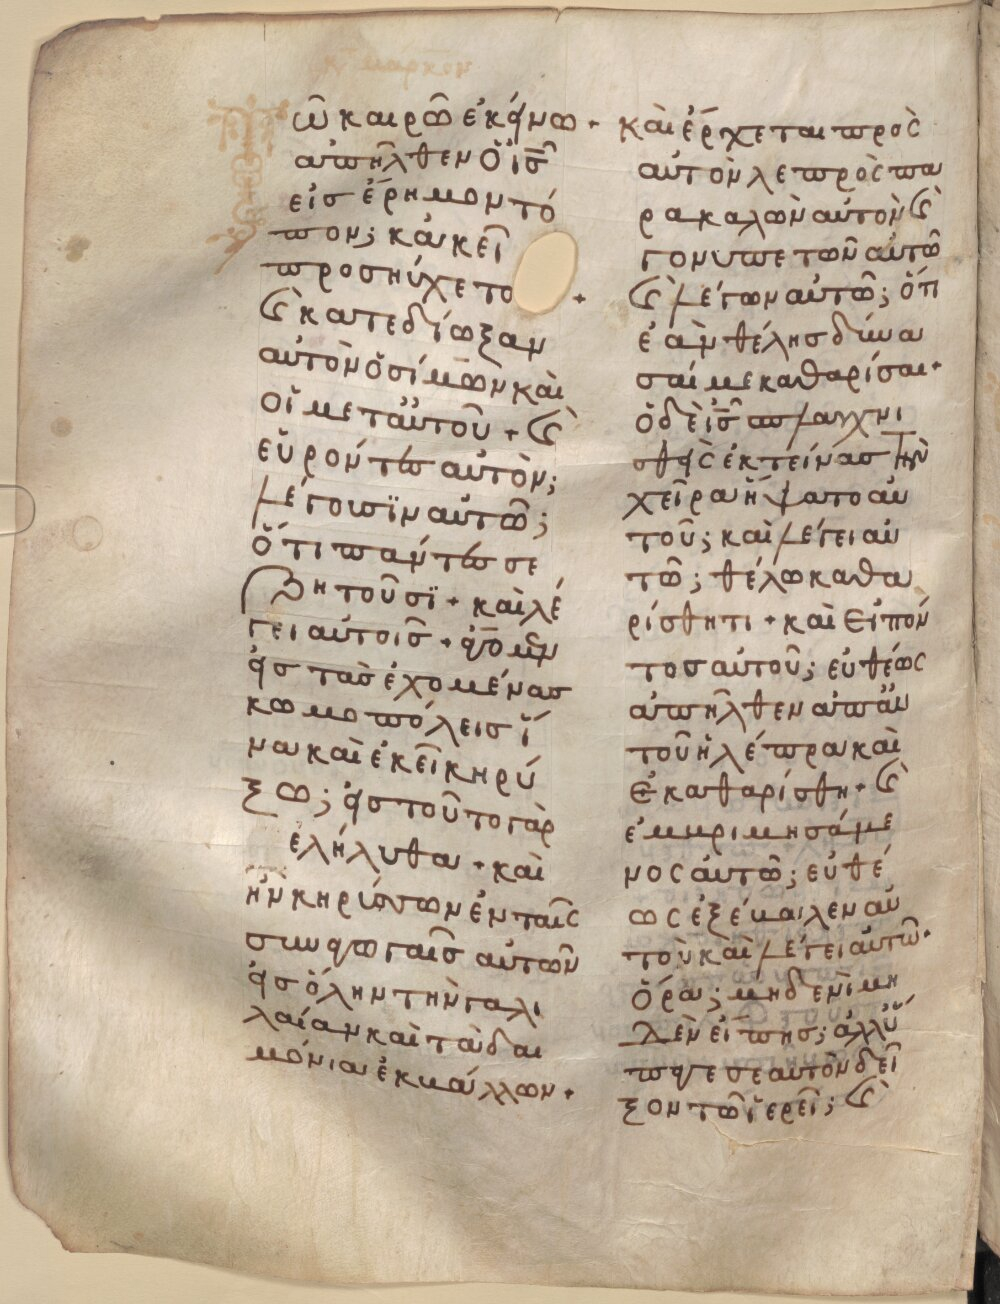 κτ μάρκον
Τῶ καιρῶ ἐκείνω + 
ἀπῆλθεν ὁ ἰς̅
εἰσ ἔρημον τό
πον; κἀκεῖ
προσηύχετο +
Ϗ κατεδίωξαν
αὐτὸν ὁ σίμων καὶ
οἱ μετ αὐτοῦ + Ϗ
εὑρόντεσ αὐτὸν;
λέγουσϊν αὐτῶ;
ὅτι πάντεσ σε
ζητοῦσϊ + καὶ λέ
γει αὐτοισ + ἄγωμεν
εἰσ τὰσ ἐχομένασ
κωμοπόλεισ ἵ
να καὶ ἐκεῖ κηρύ
ξω; εἰσ τοῦτο γὰρ
ἐλήλυθα + καὶ
ἦν κηρύσσων ἐν ταῖς
συναγωγαῖσ αὐτῶν
εἰσ ὅλην τὴν γαλι
λαίαν καὶ τὰ δαι
μόνια ἐκβάλλων +
καὶ ἔρχεται πρὸς
αὐτὸν λεπρὸς πα
ρακαλῶν αὐτὸν Ϗ
γονυπετῶν αὐτῶ
Ϗ λέγων αὐτῶ; ὅτι
ἐὰν θέλησ δύνα
σαί με καθαρίσαι +
ὁ δὲ ἰς̅ σπλαγχνι
σθεὶς ἐκτείνασ τὴν
χεῖρα ἥψατο αὐ
τοῦ; καὶ λέγει αὐ
τῶ; θέλω καθα
ρίσθητι + καὶ εἰπόν
τοσ αὐτοῦ; εὐθέως
ἀπῆλθεν ἀπ αὐ
τοῦ ἡ λέπρα καὶ
ἐκαθαρίσθη + Ϗ
ἐμβριμησάμε
νος αὐτῶ; εὐθέ
ως ἐξέβαλεν αὐ
τὸν καὶ λέγει αὐτῶ +
ὅρα; μηδενὶ μη
δὲν εἴπησ; ἀλλ ὕ
παγε σεαυτὸν δεῖ
ξον τῶ ἱερεῖ; Ϗ